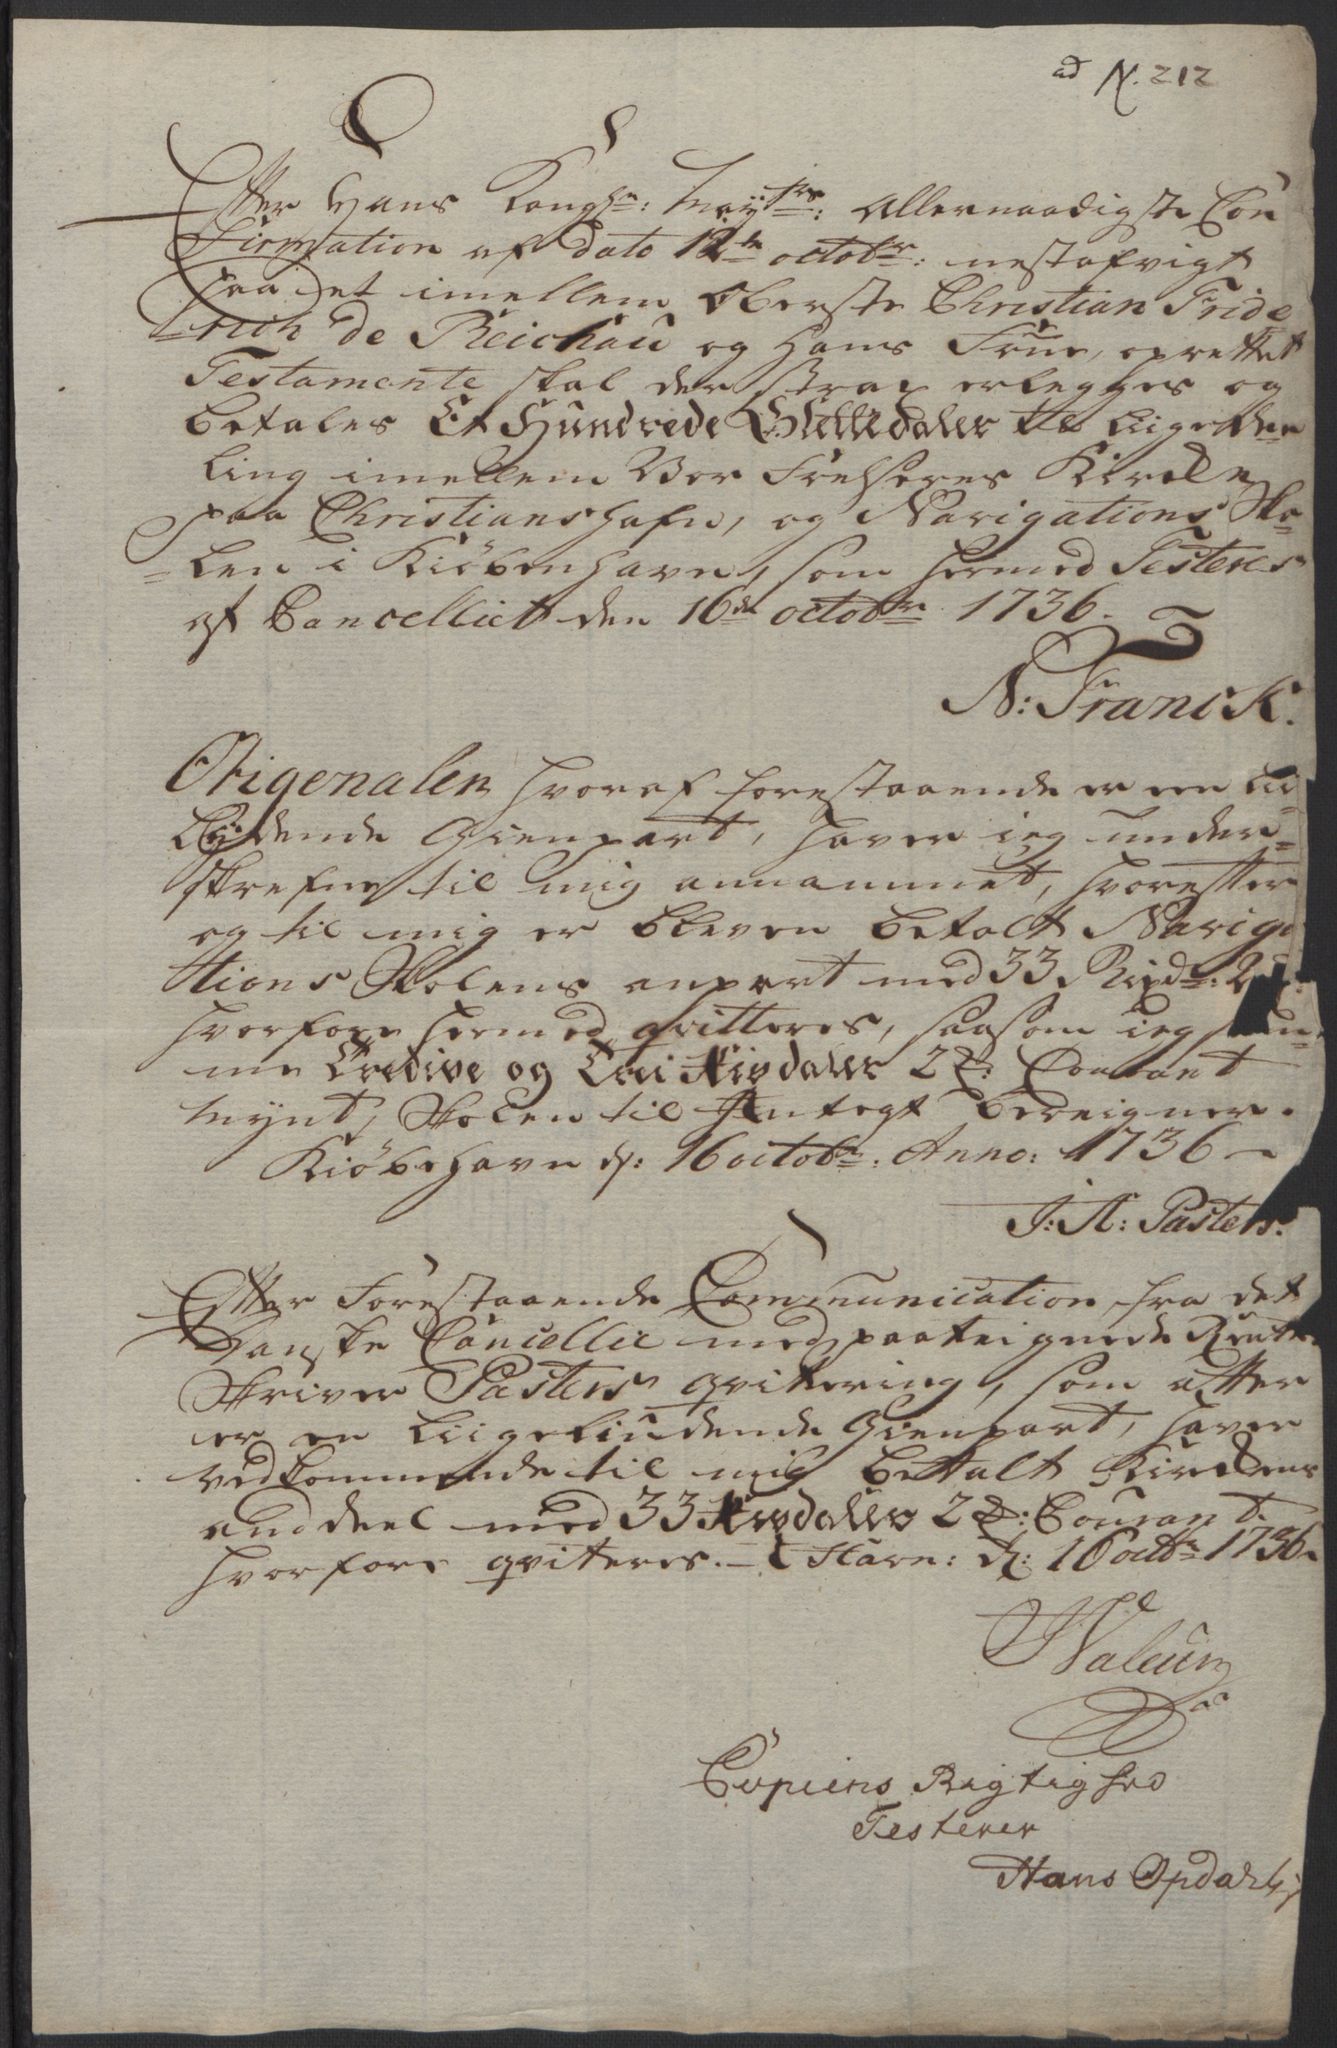 ad N. 212
Efter Hans Kongl: Mayts: Allernaadigste Con
firmation af dato 12te octobr: nestafvigt
paa det imellem Oberste Christian Fride
=rich de Reichau og hans Frue, oprettet
Testamente skal der strax erlegges og
betales Et Hundrede Sletledaler til Liige deel
ling imellem Vor Frelseres Kircke
paa Christianshafn, og Navigations Sko=
=len i Kiöbenhavn, som hermed Testeres
af Cancelliet den 16de octobr 1736.
N: Franck.
Origenalen hvoraf forestaaende er een Lii
lydende Gienpart, haver ieg under=
skrefne til mig annammet, hvorefter
og til mig er bleven betalt Naviga
tions Skolens anpart med 33 Rixdr: 2
hvorfore hermed qvitteres, saasom ieg
me Tredive og Trei Rixdaler 2 ℔: Courant
Mynt, Skolen til Indtegt bereigner.
Kiöbehavn d: 16 octobr: Anno: 1736
J: A: Pasters.
Efter Forestaaende Communication fra det
Danske Cancellie med paateignede Rente
Skriver Pasters qvittering, som efter
er en Liigeliudende Gienpart, haver
vedkommende til mig bettalt Kirckens
anddeel med 33 Rixdaler 2 ℔: Courant.
hvorfore qviteres. - C Havn: d: 16 octbr 1736
Copiens Rigtighed
Testerer
Hans Opdahl